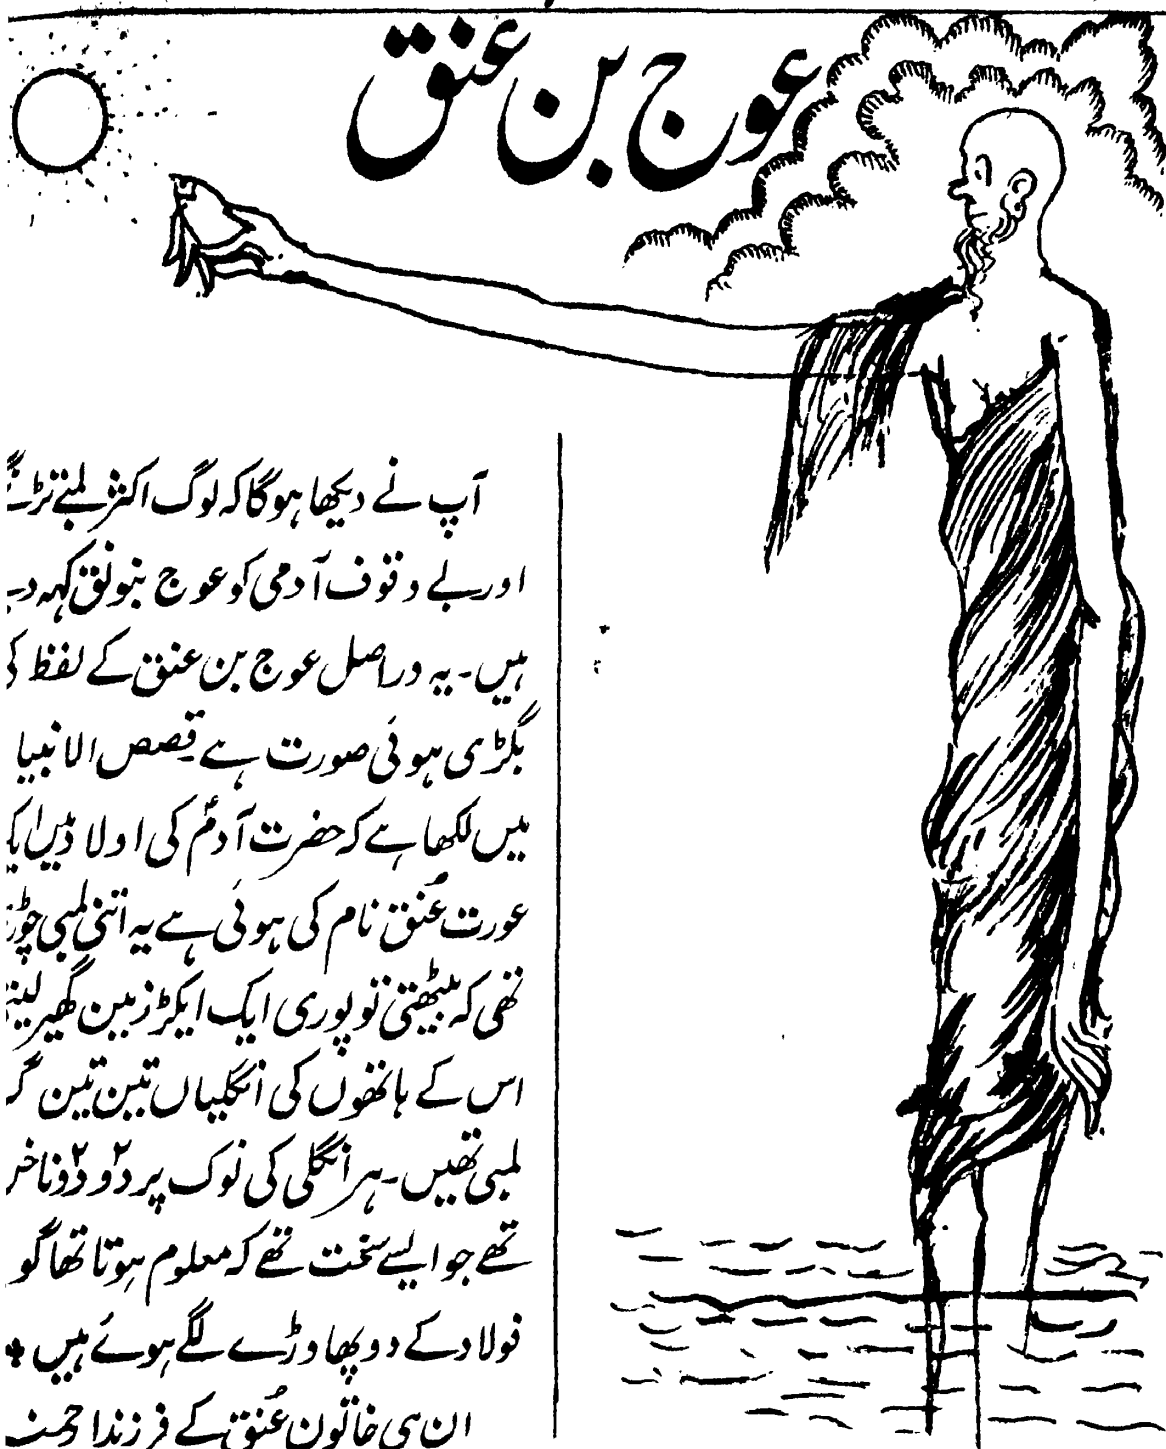 عوج بن عنق
آپ نے دیکھا ہوگا کہ لوگ اکثر لمبے تڑنگے
اور بے وقوف آدمی کو عوج بنوتق کہہ دیتے
ہیں۔ یہ دراصل عوج بن عنق کے لفظ کی
بگڑی ہوئی صورت ہے۔ قصص الانبیا
میں لکھا ہے کہ حضرت آدمؑ کی اولاد میں ایک
عورت عُنق نام کی ہوئی ہے یہ اتنی لمبی چوڑی
تھی کہ بیٹھتی تو پوری ایک ایکڑ زمین گھیر لیتی
اس کے ہاتھوں کی انگلیاں تین تین گز
لمبی تھیں۔ ہر انگلی کی نوک پر دو۲ دو۲ ناخن
تھے جو ایسے سخت تھے کہ معلوم ہوتا تھا گویا
فولاد کے دو پھاوڑے لگے ہوئے ہیں
ان ہی خاتون عُنق کے فرزند